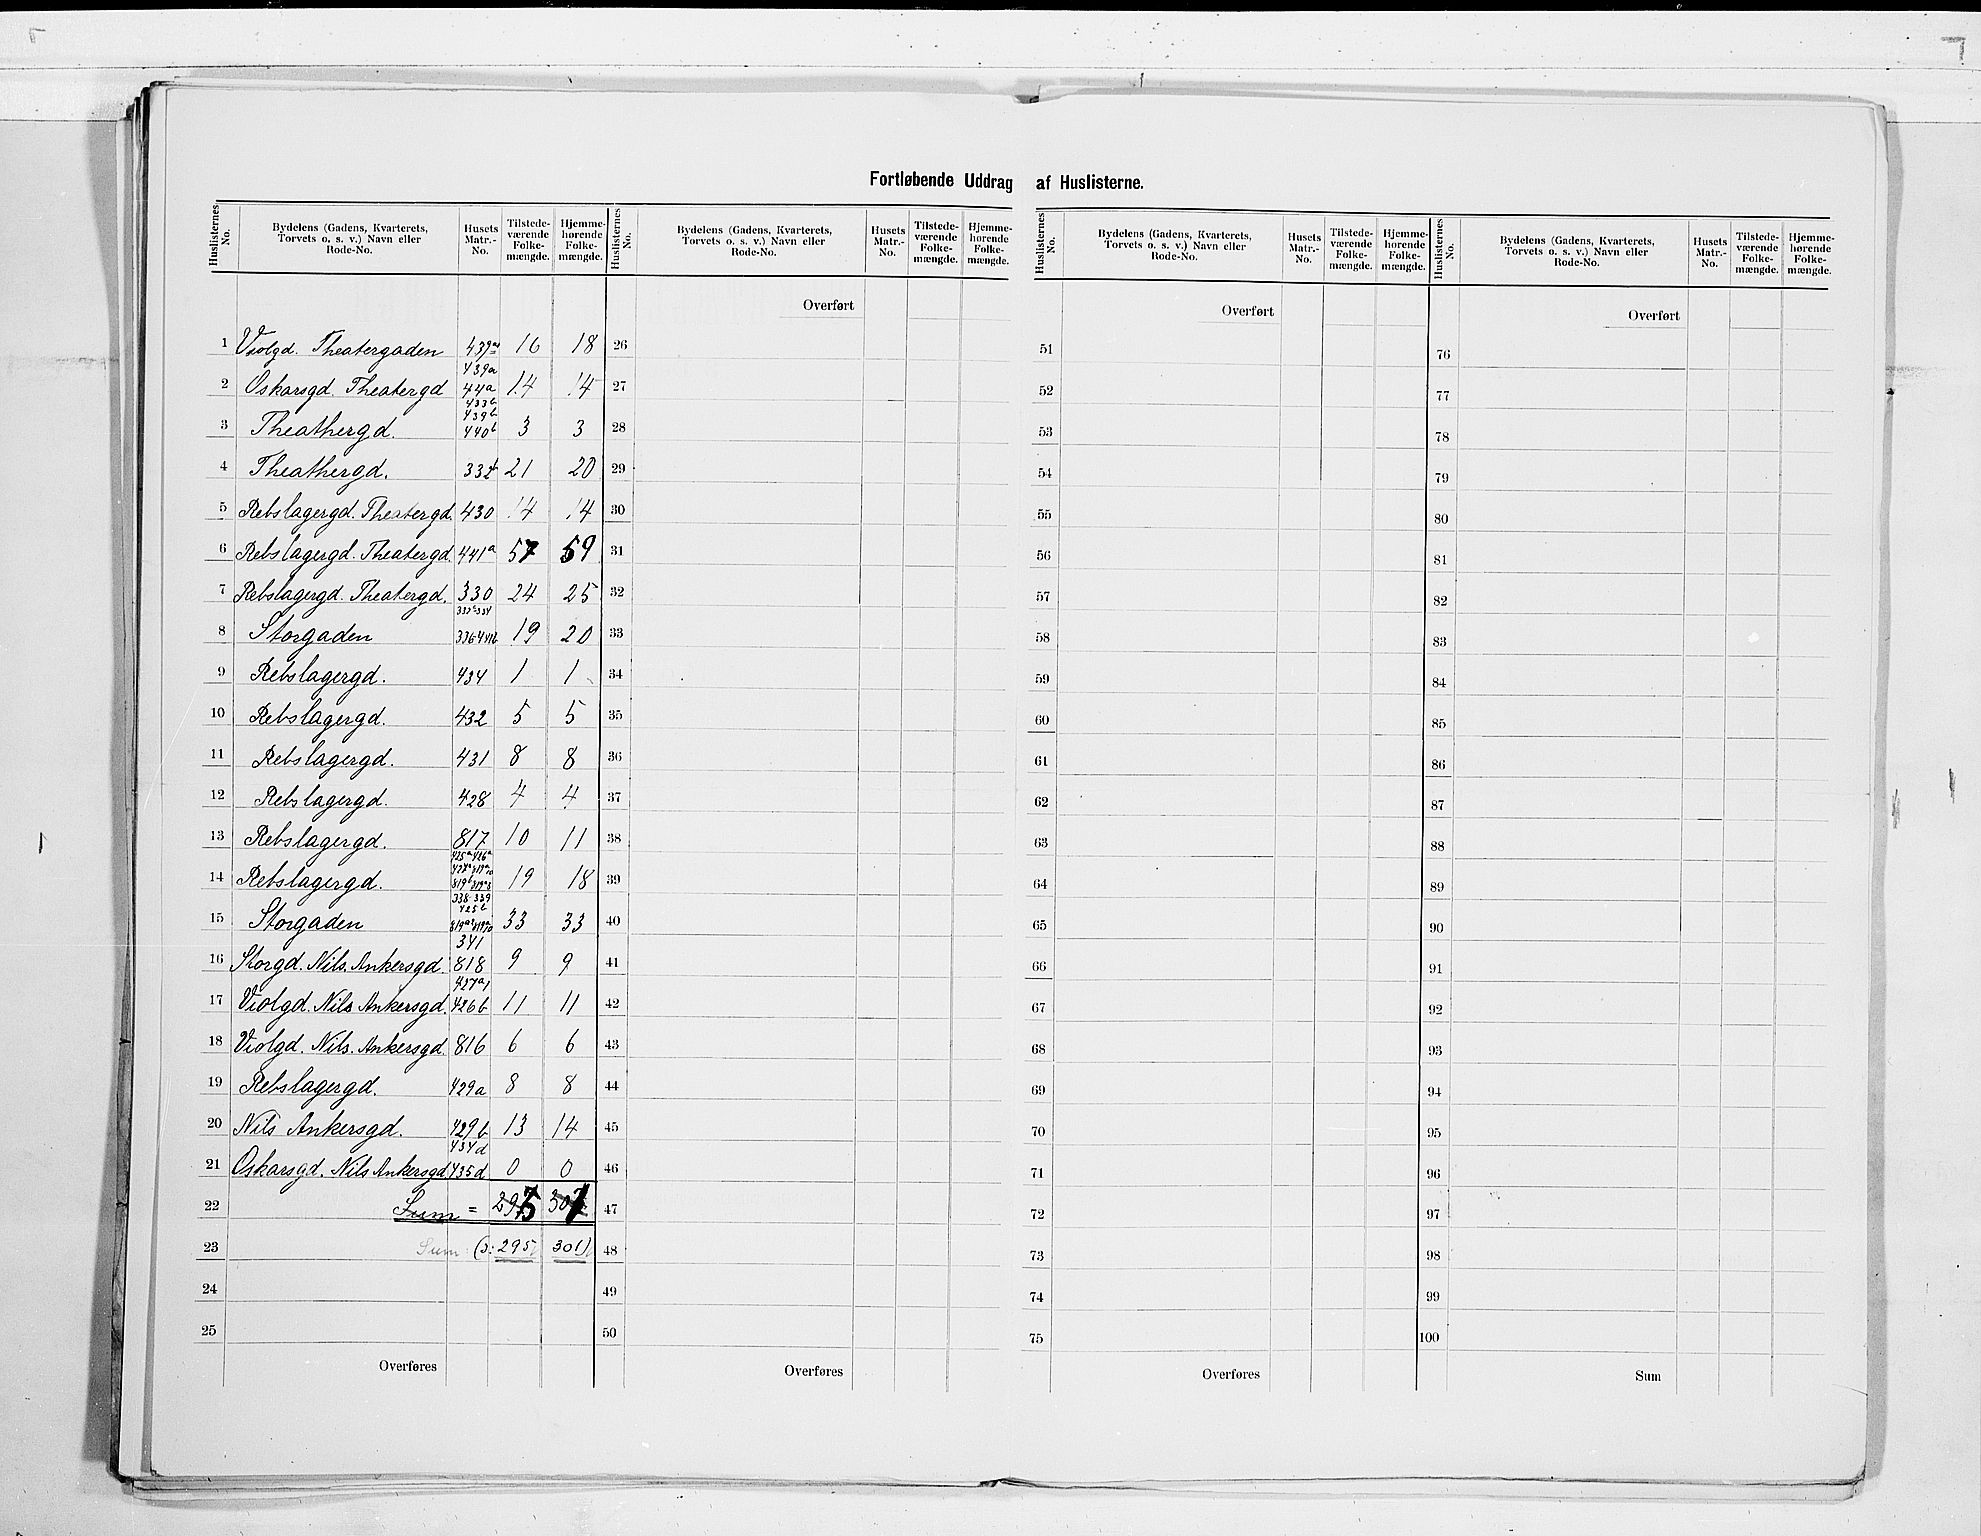 Fortløbende Uddrag af Huslisterne.
Huslisternes No. Bydelens (Gadens, Kvarterets, Torvets o. s. v.) Navn eller Rode-No. Husets Matr.-No. Tilstedeværende Folkemængde. Hjemmehørende Folkemængde.
Huslisternes No. Bydelens (Gadens, Kvarterets, Torvets o. s. v.) Navn eller Rode-No. Husets Matr.-No. Tilstedeværende Folkemængde. Hjemmehørende Folkemængde.
Huslisternes No. Bydelens (Gadens, Kvarterets, Torvets o. s. v.) Navn eller Rode-No. Husets Matr.-No. Tilstedeværende Folkemængde. Hjemmehørende Folkemængde.
Huslisternes No. Bydelens (Gadens, Kvarterets, Torvets o. s. v.) Navn eller Rode-No. Husets Matr.-No. Tilstedeværende Folkemængde. Hjemmehørende Folkemængde.
Overført Overført Overført
1 Violgd. Theatergaden 16 18 26 51 76
2 Oskarsgd. Theatergd 439a 44a 14 14 27 52 77
3 Theathergd. 433b 439b 440b 3 3 28 53 78
4 Theathergd. 21 20 29 54 79
5 Rebslagergd. Theatergd. 430 14 14 30 55 80
6 Rebslagergd. Theatergd. 441a 57 59 31 56 81
7 Rebslagergd. Theatergd. 330 24 25 32 57 82
8 Storgaden 19 20 33 58 83
9 Rebslagergd. 434 1 1 34 59 84
10 Rebslagergd. 432 5 5 35 60 85
11 Rebslagergd. 431 8 8 36 61 86
12 Rebslagergd. 428 4 4 37 62 87
13 Rebslagergd. 817 10 11 38 63 88
14 Rebslagergd. 425a 426a 19 18 39 64 89
15 Storgaden 338 339 425b 33 33 40 65 90
16 Storgd. Nils. Ankersgd. 341 818 9 9 41 66 91
17 Violgd. Nils Ankersgd. 426b 11 11 42 67 92
18 Violgd. Nils. Ankersgd. 816 6 6 43 68 93
19 Rebslagergd. 429a 8 8 44 69 94
20 Nils Ankersgd. 429b 13 14 45 70 95
21 Oskarsgd. Nils Ankersgd 434d 435d 0 0 46 71 96
22 Sum = 295 301 47 72 97
23 Sum: (ɔ: 295 301) 48 73 98
24 49 74 99
25 50 75 100
Overføres Overføres Overføres Sum